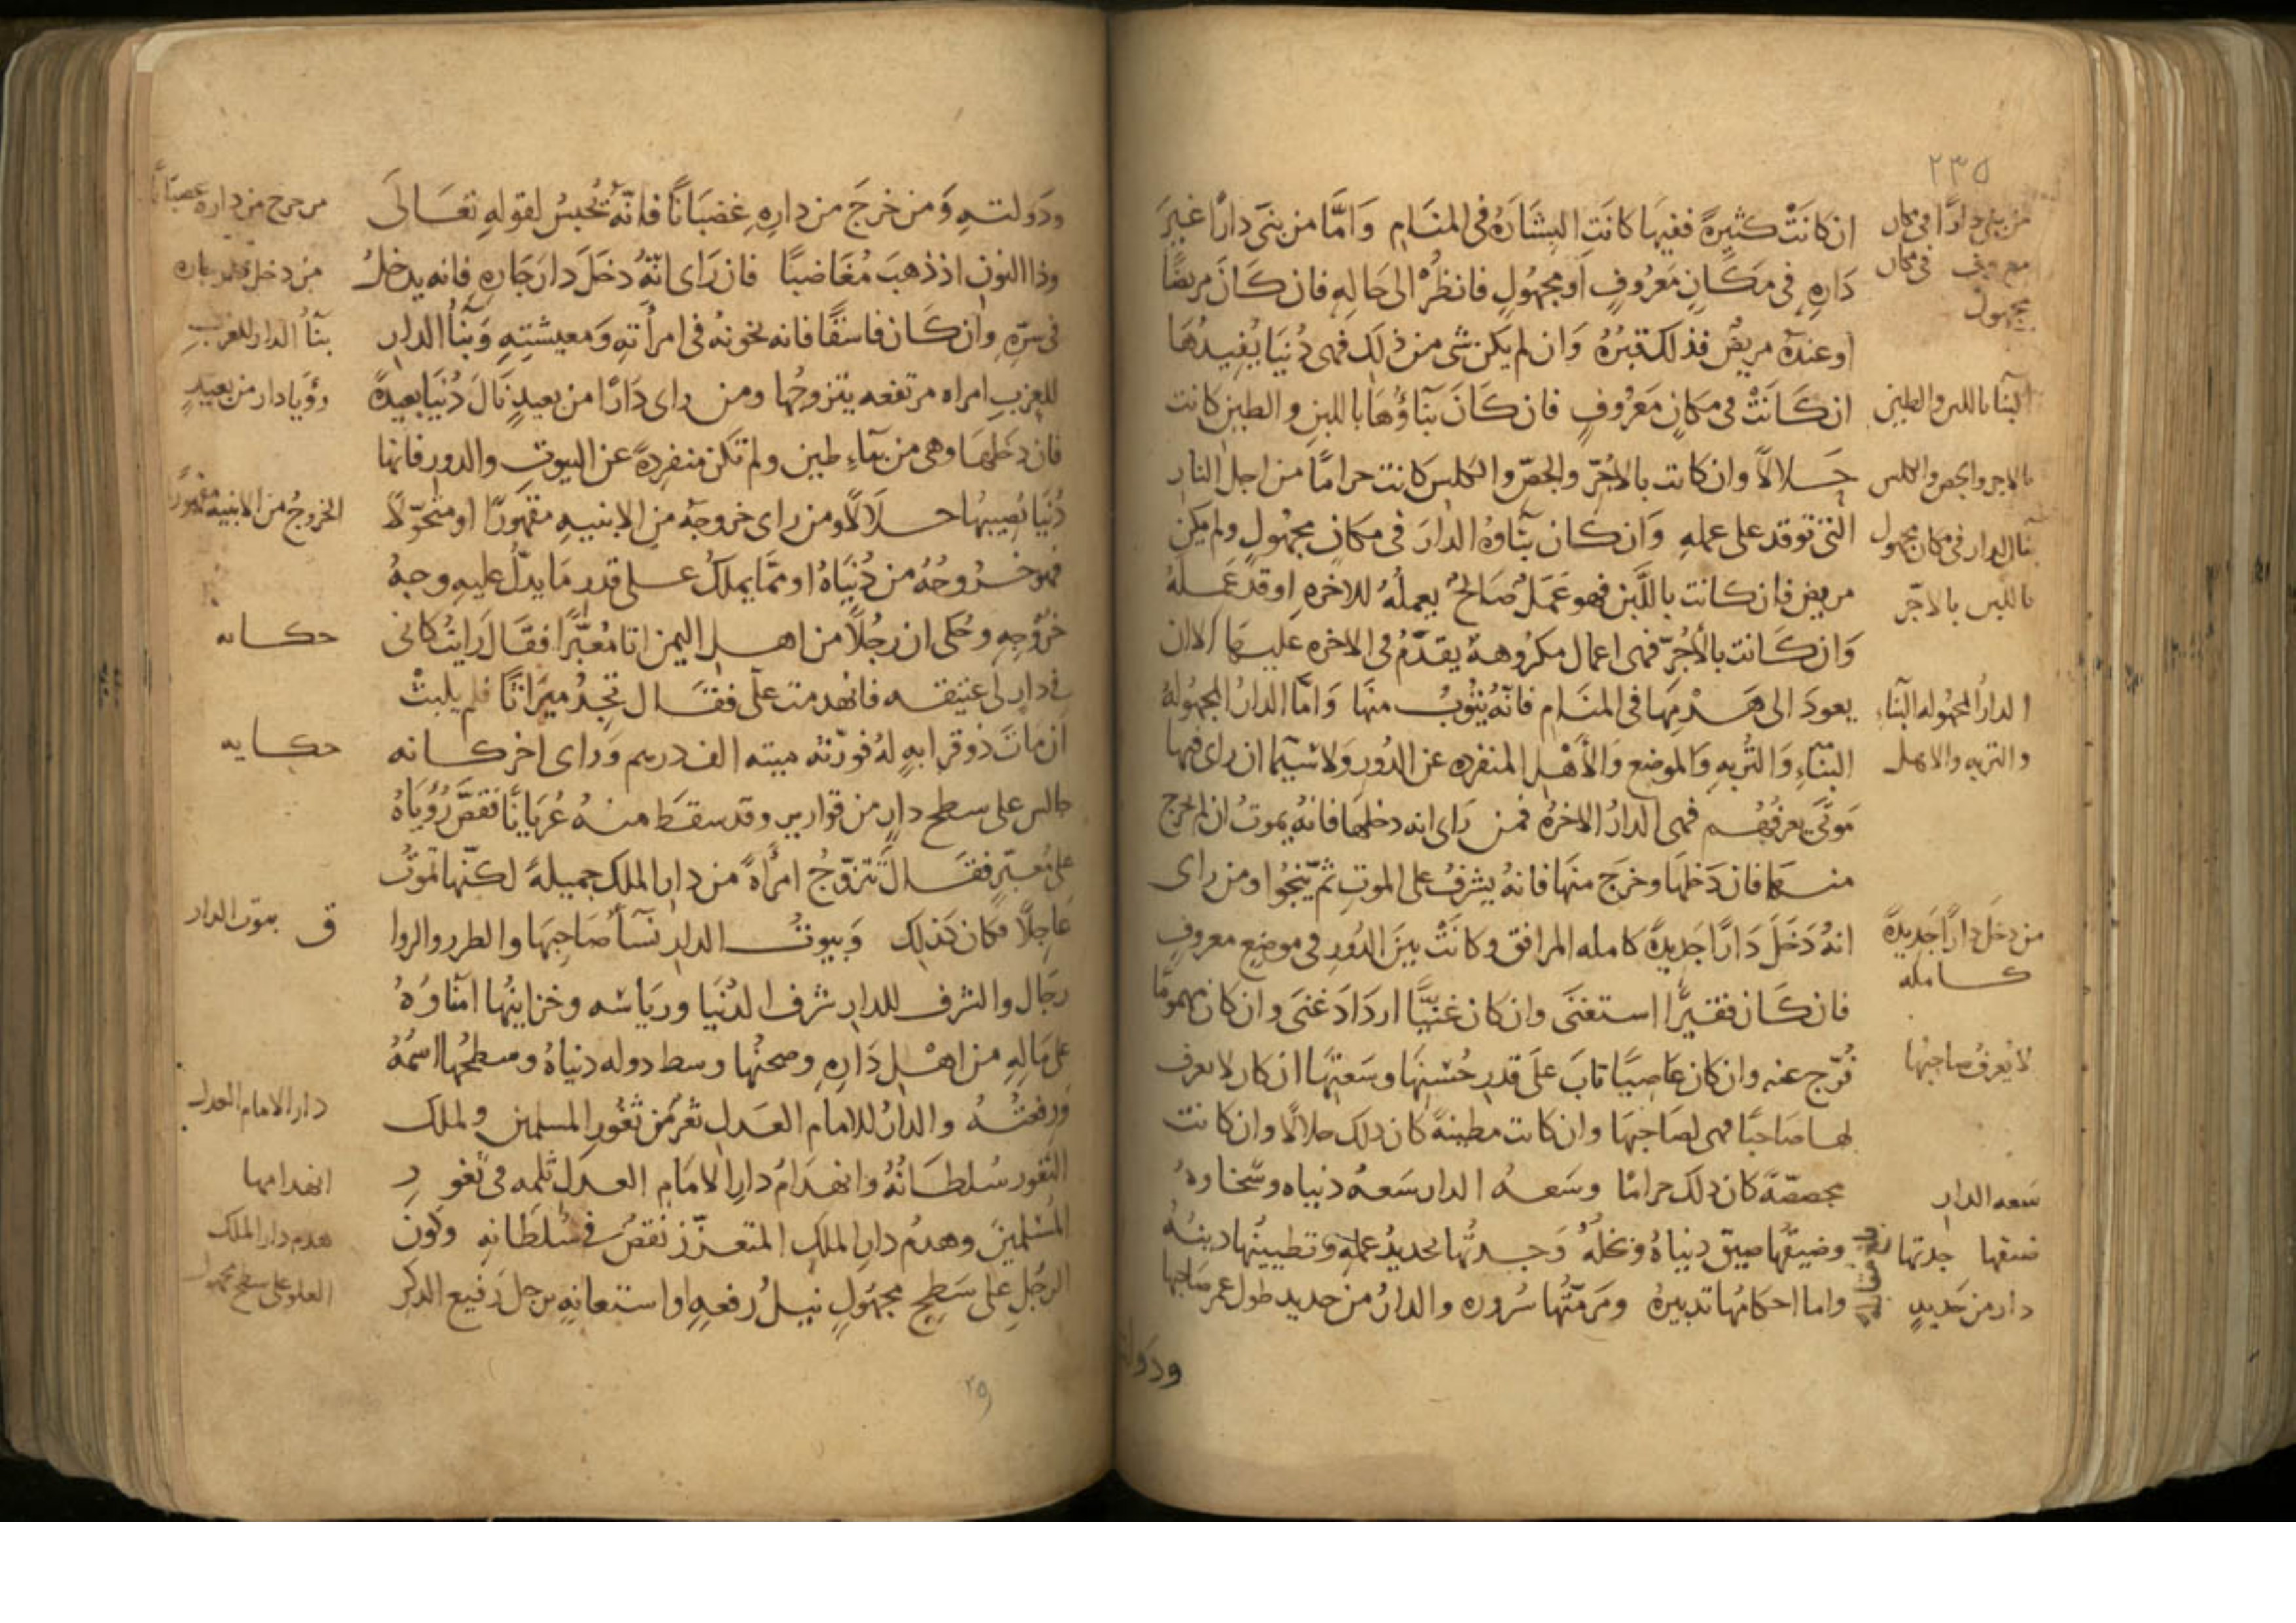 ٢٣٥
ان كانَتْ كثيرةً ففيهَا كانَت البشَارَهُ فى المنَامِ وَامَّا من بنىَ دارًا غيرَ
دَارِهِ فى مَكَانٍ مَعرُوفٍ اَو مجهُولٍ فانظُرْ الى حَالِهِ فان كَانَ مريضًا
اوعندهُ مريضٌ فذلك قبرُهُ وَان لم يكن شى من ذلَك فهى دُنيَا يُفيدُهَا
ان كَانَتْ فى مَكانٍ مَعرُوفٍ فان كَانَ بنَاؤُهَا باللبنِ والطينِ كانت
حَلالاً وان كانت بالاجُرّ والجصّ والكلس كانت حرامًا من اجل النار
التى توقد على عملهِ وَان كان بنَاوهُ الدارَ فى مكانٍ مجهُولٍ ولم يكن
مريض فان كانت باللَّبن فهو عَمَلٌ صَالحٌ يعملُهُ للاخرهِ اوقد عَمِلهُ
وَان كَانت بالأجُرّ فهى اعمال مكرُوهةٌ يقدَّمُ فى الاخره عليهَا الا ان
يعودَ الى هَدْمِهَا فى المنَامِ فانَّهُ يتُوبُ منهَا وَامَّا الدارُ المجهُولهُ
البنَاءِ وَالتُّربهِ وَالموضع وَالأَهْلِ المنفرده عن الدُورِ وَلاسَيّما ان راى فيها
مَوتَى يعرفُهُم فهى الدارُ الاخرهُ فمن رَاى انه دخلهَا فانهُ يموتُ ان لم يخرج
منهَا فان دَخلهَا وخرَج منهَا فانهُ يشرفُ على الموتِ ثمّ ينجُوا ومن راى
انهُ دَخَلَ دَارًا جَديدةً كامله المرافق وكانَتْ بينَ الدُورِ فى موضِع معروفٍ
فان كَان فقيرًا استغنَى وان كان غنيًّا ازدَادَ غنَى وان كان مهمومًا
فُرّج عنه وان كان عَاصيًا تابَ علَى قدرِ حُسْنِهَا وسَعتِهَا ان كان لا يعرف
لها صَاحبًا فهى لصَاحبهَا وان كانت مطينةً كان ذلك حلالًا وان كانت
مجصصّةً كان ذلك حرامًا وسَعهُ الدار سَعهُ دنياه وسَخاوهُ
وضيقُها ضيق دنياهُ وبخلُهُ وَجدتُّها تجديدُ عملِهِ وتطيينُها دينُهُ
واما احكامُها تدبيرهُ ومَرمّتُها سُروره والدارُ من حديد طول عمر صَاحبها
من بنى دارًا فى مكان
معروف فى مكان
مجهول
البنا باللبن والطين
بالاجر والجص والكلس
بنا الدار فى مكان مجهول
باللبن بالاجّر
الدارُ المجهُوله البنَاءِ
والتربه والاهل
من دخَل دارًا جَديدةً
كامله
لا يُعرفُ صاحبُها
سَعه الدار
ضيقها جدتها
دار من حَديدٍ
ودولته
ودَولتهِ وَمن خرجَ من دارِهِ غضبَانًا فانّهُ يُحبسُ لقولهِ تعَالىَ
وذا النونِ اذ ذهبَ مُغَاضبًا فان رَاى انّهُ دخَلَ دارَ جَارِهِ فانه يدخلُ
فى سرّهِ وان كَان فاسقًا فانه يخونهُ فى امرأتهِ وَمعيشتِهِ وَبنَاُ الدار
للعزبِ امراه مرتفعه يتزوجُها ومن راى دَارًا من بعيدٍ نَالَ دُنيَا بعيدةً
فان دَخلهَا وهى من بنَاءِ طين ولم تكن منفردةً عن البيوتِ والدورِ فانها
دُنيَا يُصيبهَا حلَالًا ومن راى خروجَهُ من الابنيه مقهورًا او متحوّلًا
فهو خرُوجُهُ من دُنيَاهُ او ممَّا يملكُ على قدرِ مَا يدلُّ عليهِ وجهُ
خرُوجِهِ وحُكى ان رجُلًا من اهل اليمن اتا مُعبّرًا فقَال رَايتُ كانى
فى دارٍ لى عتيقه فانهدمت علَى فقَال تجدُ ميرَاثًا فلم يلبثْ
ان مَاتَ ذو قرابهٍ لهُ فورّثهُ ميته الف درهم وَراى اخر كانه
جالس على سطح دارٍ من قوارير وقد سقَطَ منهُ عُريَانًا فقصَّ رُؤيَاهُ
على مُعبّرٍ فقَال تَتزوَّجُ امرأةً من دار الملك جميلةً لكنّها تموتُ
عَاجلًا فكان كَذلِك وَبيوتُ الدار نسَاُ صَاحبهَا والطرر والروا
رجَال والشرف للدار شرف الدُنيَا وريَاسَه وخزاينُها امنَاوُهُ
على مَالِهِ من اهْلِ دَارِهِ وصحنُها وسط دوله دنيَاهُ وسطحُها اسمُهُ
وَرِفعتُهُ والدارُ للامَامِ العَدلِ ثغرٌ من ثغُورِ المسلمين ولملك
الثغور سُلطَانُهُ وانهدَامُ دارِ الامَامِ العدل ثلمه فى ثغورِ
المُسْلمينَ وهدمُ دارِ الملك المتعزّز نقصٌ فى سُلطَانهِ وكونَ
الرجُلِ على سَطحٍ مجهُولٍ نيلُ رفعهٍ او استعانهٍ برجل رفيع الذكر
من خرج من داره غضبَانًا
من دخل دار جاره
بنَاُ الدار للعزب
رؤيَا دار من بعيدٍ
الخروجُ من الابنيه مقهورًا
حكايه
حكايه
ق بيوت الدار
دار الامام العدل
انهدامها
هدم دار الملك
العلو على سطح مجهول